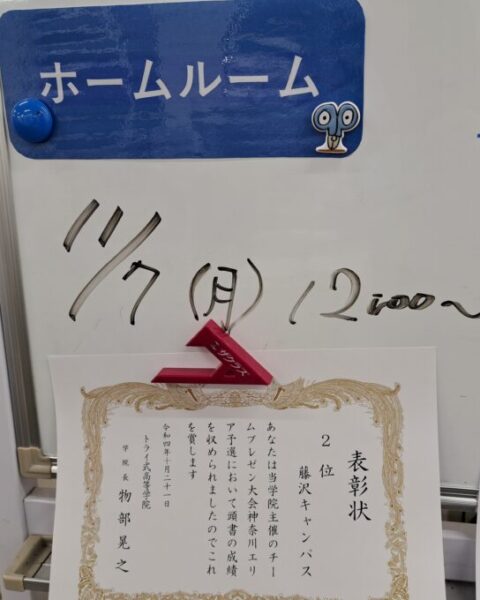 ホームルーム
11/7(月) 12:00〜
表彰状
2位
藤沢キャンパス
あなたは当学院主催のチー
ムプレゼン大会神奈川エリ
ア予選において頭書の成績
を収められましたのでこれ
を賞します
令和四年十月二十一日
トライ式高等学院
学院長 物部晃之